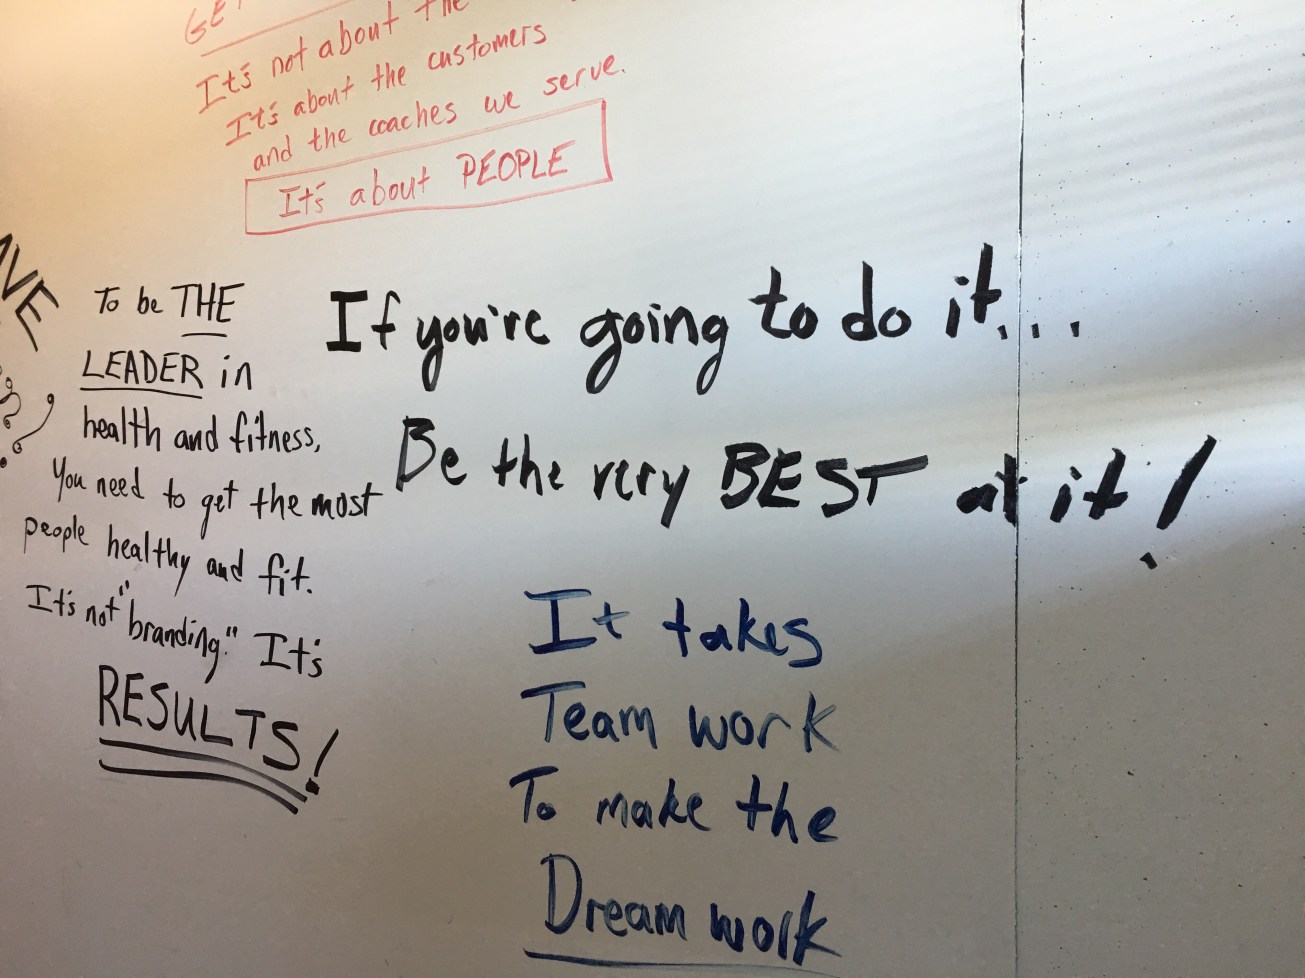 It's not about the
It's about the customers
and the coaches we serve.
It's about PEOPLE
To be THE
LEADER in
health and fitness,
You need to get the most
people healthy and fit.
It's not "branding." It's
RESULTS!
If you're going to do it...
Be the very BEST at it!
It takes
Team work
To make the
Dream work